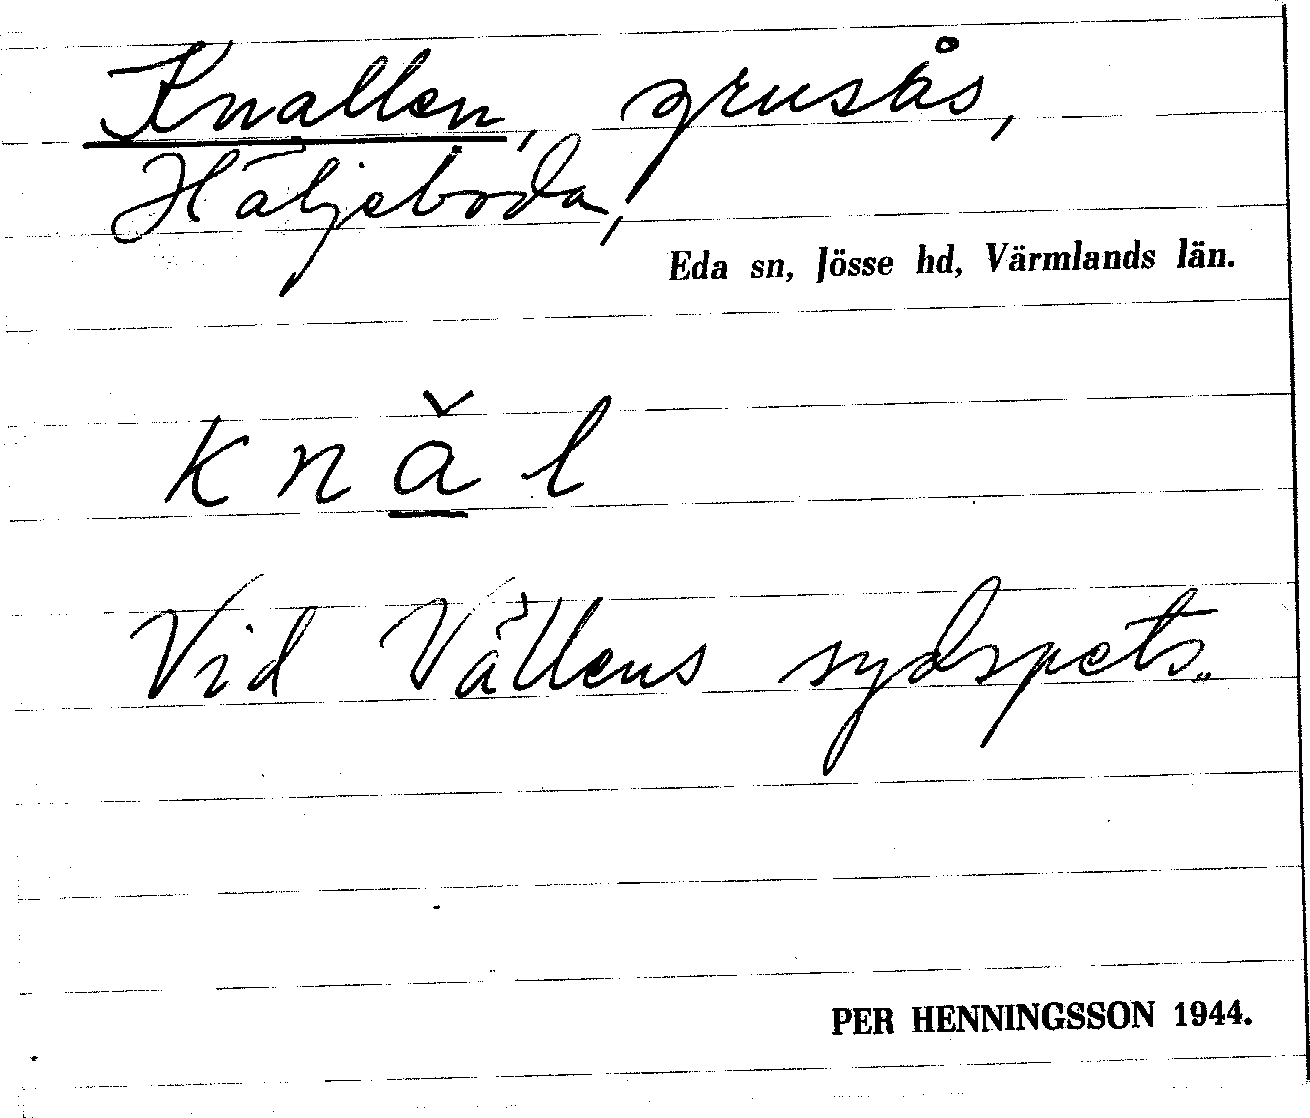 Knallen, grusås,
Häljeboda,
Eda sn, Jösse hd, Värmlands län.
k n ǎ l
Vid Vällens sydspets.
PER HENNINGSSON 1944.